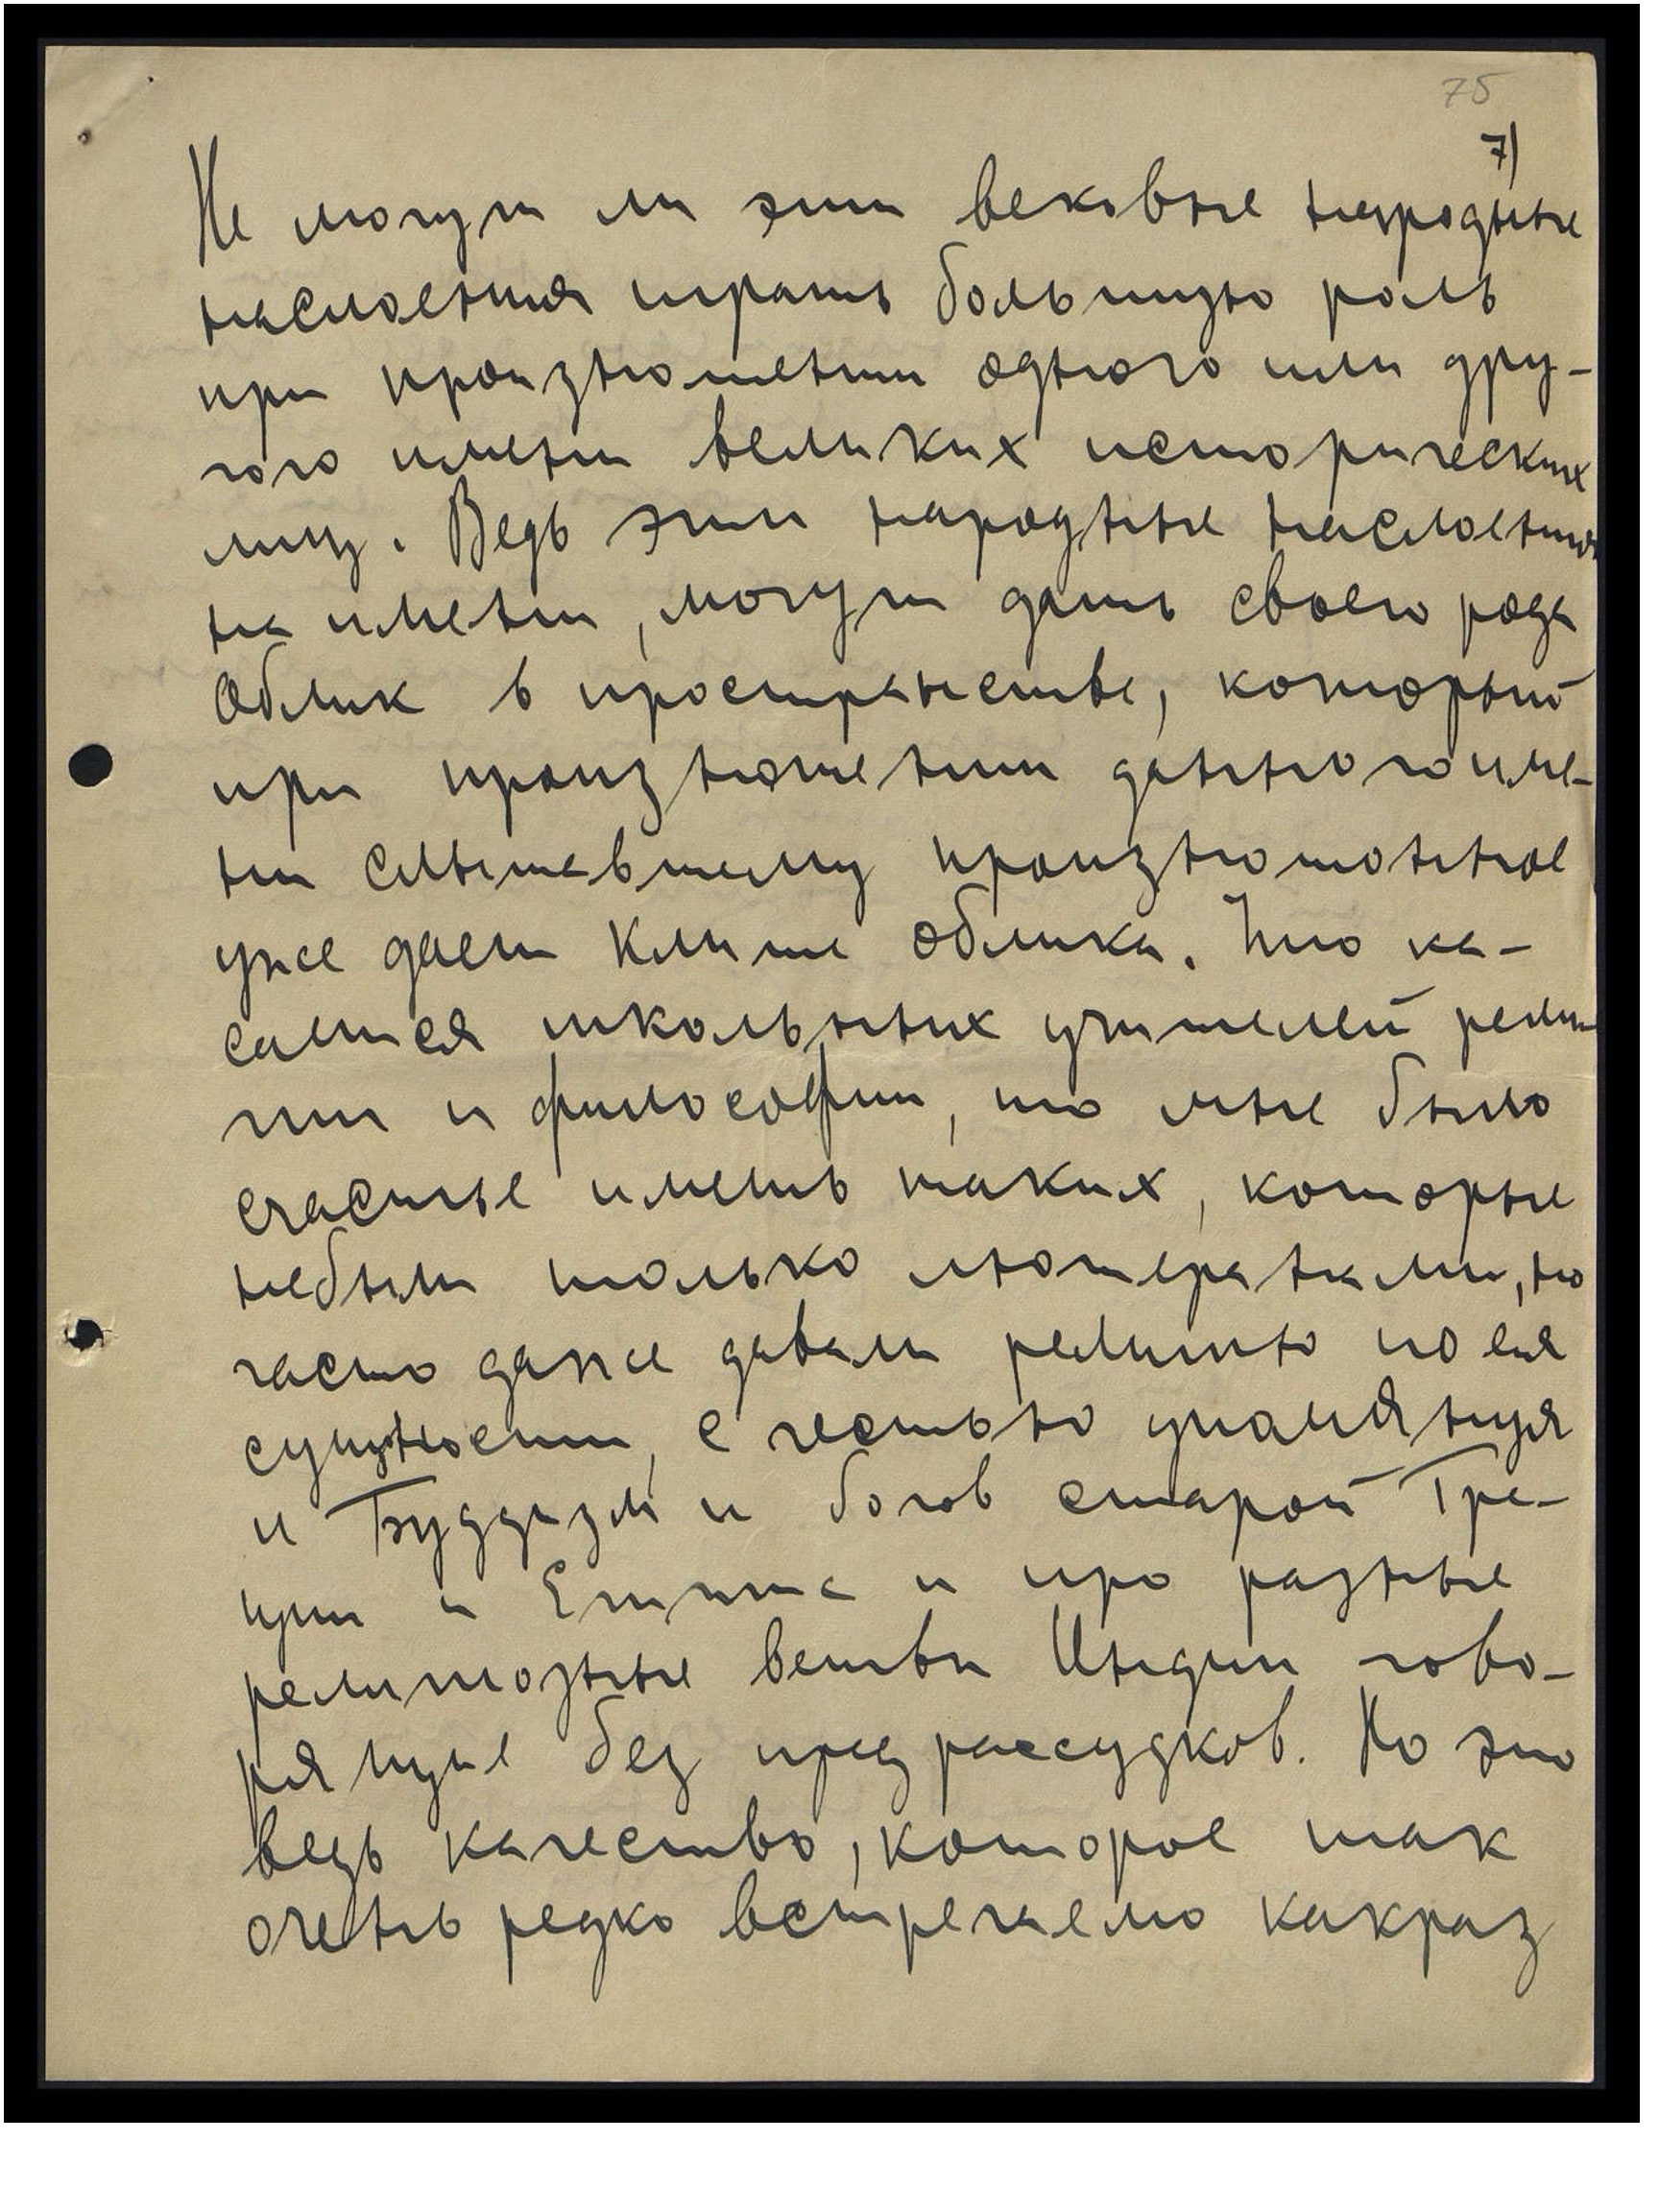 75
7)
Не могут ли эти вековые народные
наслоения играть большую роль
при произношении одного или дру-
гого имени великих исторических
лиц. Ведь эти народные наслоения
на имени, могут дать своего рода
облик в пространстве, который
при произношении данного име-
ни слышавшему произношонное
уже дает клише облика. Что ка-
сается школьных учителей рели
гии и философии, то мне было
счастье иметь таких, которые
небыли только лютеранами, но
часто даже давали религию по ея
сущности, с честью упомянуя
и Буддизм и богов старой Гре-
ции и Египта и про разные
религиозные ветви Индии гово-
рящие без предрассудков. Но это
ведь качество, которое так
очень редко встречаемо какраз